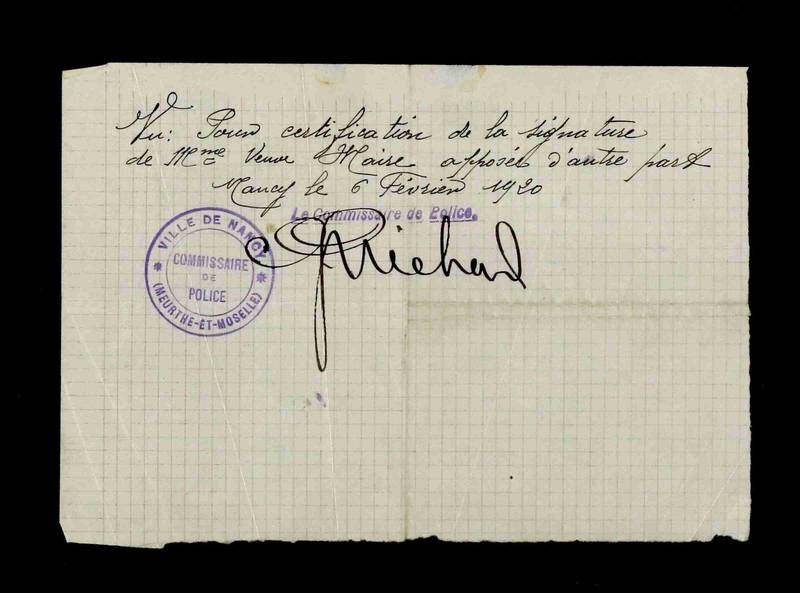 Vu: Pour certification de la signature
de Mme Veuve Maire apposée d'autre part
Nancy le 6 Février 1920
Le Commissaire de Police,
VILLE DE NANCY
COMMISSAIRE
DE
POLICE
(MEURTHE-ET-MOSELLE)